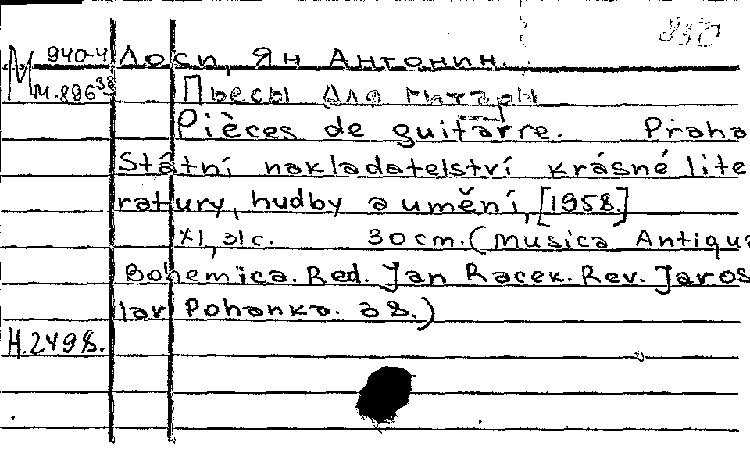 830
940-4 Лоси, Ян Антонин.
М
м.896³⁸ Пьесы для гитары
Pièces de guitarre. Praha
Státní nakladatelství krásné lite
ratury, hudby a umění, [1958.]
XI, 31 с. 30 cm. (Musica Antiqua
Bohemica. Red. Jan Racek. Rev. Jaros
lav Pohanka. 38.)
Н.2498.